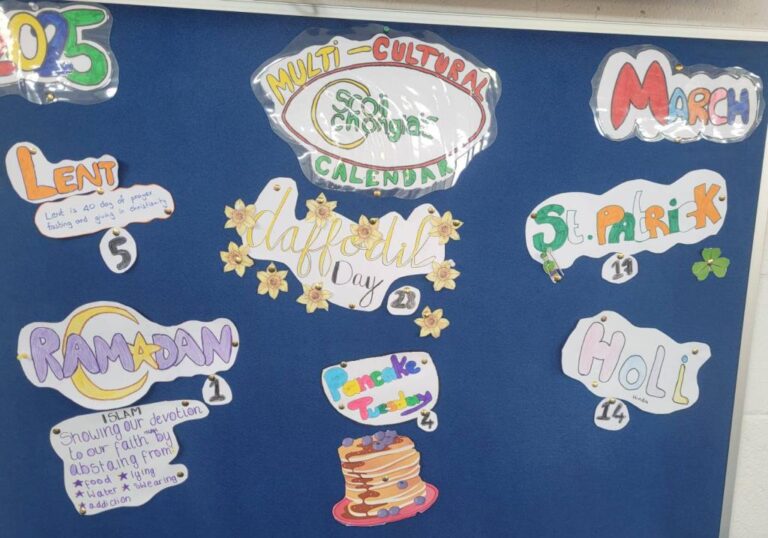 2025
MULTI-CULTURAL
scoil
chonglais
CALENDAR
MARCH
LENT
Lent is 40 day of prayer
fasting and giving in christianity
5
daffodil
Day
28
St. Patrick
17
RAMADAN
1
ISLAM
Showing our devotion
to our faith by
abstaing from:
★food ★lying
★water ★swearing
★addiction
Pancake
Tuesday
4
HOLI
Hindu
14